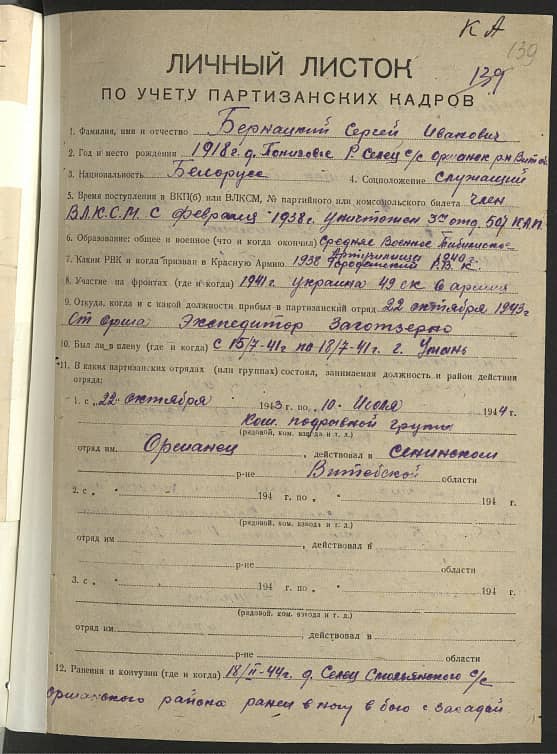 КА
139
139
ЛИЧНЫЙ ЛИСТОК
ПО УЧЕТУ ПАРТИЗАНСКИХ КАДРОВ
1. Фамилия, имя и отчество Бернацкий Сергей Иванович
2. Год и место рождения 1918 г. д. Понизовье Р. Селец с/с оршанск р-н Витеб
3. Национальность Белорусс 4. Соцположение служащий
5. Время поступления в ВКП(б) или ВЛКСМ, № партийного или комсомольского билета член
ВЛКСМ с февраля 1938 г. уничтожен 3ий отд. 501 КАП.
6. Образование: общее и военное (что и когда окончил) Среднее Военное Тбилисское
Артучилище 1940 г.
7. Каким РВК и когда призван в Красную Армию 1938 Р.В.К.
8. Участие на фронтах (где и когда) 1941 г. украина 49 ск 6 армия
9. Откуда, когда и с какой должности прибыл в партизанский отряд 22 октября 1943 г
От орша Экспедитор Заготзерно
10. Был ли в плену (где и когда) с 15/7-41 г. по 18/7-41 г. г. Умань
11. В каких партизанских отрядах (или группах) состоял, занимаемая должность и район действия
отряда:
1. с „22 октября 1943 г. по „10 Июля 1944 г.
Ком. подрывной группы
(рядовой, ком. взвода и т. д.)
отряд им. Оршанец, действовал в Сенинском
р-не Витебской области
2. с „ " 194 г. по „ " 194 г.
(рядовой, ком. взвода и т. д.)
отряд им. , действовал в
р-не области
3. с „ " 194 г. по „ " 194 г.
(рядовой, ком. взвода и т. д.)
отряд им. действовал в
р-не области
12. Ранения и контузии (где и когда) 18/II-44 г. д. Селец Смольянского с/с
оршанского района ранен в ногу в бою с засадой